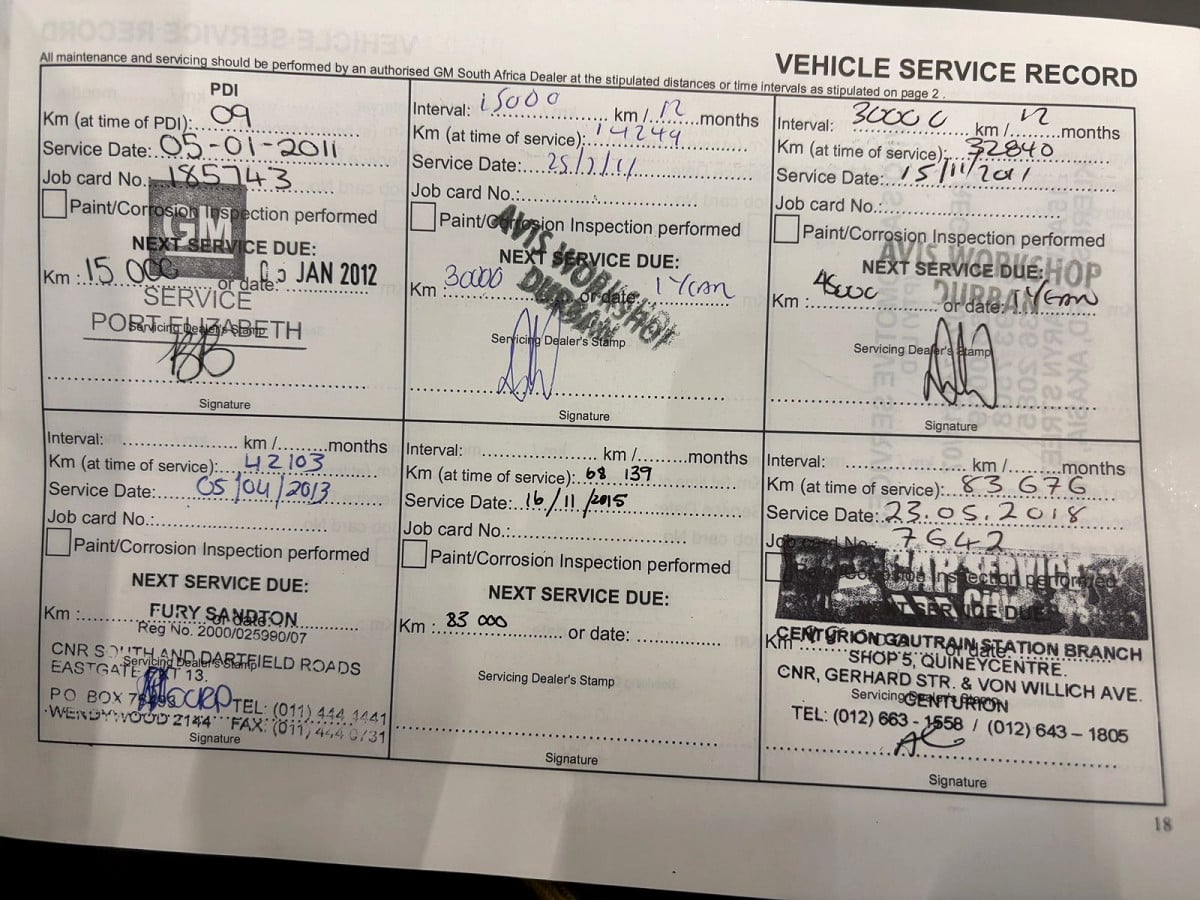 VEHICLE SERVICE RECORD
All maintenance and servicing should be performed by an authorised GM South Africa Dealer at the stipulated distances or time intervals as stipulated on page 2 .
PDI
Km (at time of PDI): 09
Service Date: 05-01-2011
Job card No.: 185743
Paint/Corrosion Inspection performed
GM
NEXT SERVICE DUE:
Km : 15 000 or date: JAN 2012
SERVICE
PORT ELIZABETH
Servicing Dealer's Stamp
Signature
Interval: 15000 km / 12 months
Km (at time of service): 14249
Service Date: 25/7/11
Job card No.:
Paint/Corrosion Inspection performed
AVIS WORKSHOP
DURBAN
NEXT SERVICE DUE:
Km : 30000 or date: 1 Year
Servicing Dealer's Stamp
Signature
Interval: 30000 km / 12 months
Km (at time of service): 32840
Service Date: 15/11/2011
Job card No.:
Paint/Corrosion Inspection performed
AVIS WORKSHOP
DURBAN
NEXT SERVICE DUE:
Km : 45000 or date: 1 Year
Servicing Dealer's Stamp
Signature
Interval: km / months
Km (at time of service): 42103
Service Date: 05/04/2013
Job card No.:
Paint/Corrosion Inspection performed
NEXT SERVICE DUE:
Km : or date:
FURY SANDTON
Reg No. 2000/025990/07
CNR SOUTH AND DARTFIELD ROADS
Servicing Dealer's Stamp
EASTGATE EXT 13.
P.O. BOX TEL: (011) 444 1441
WENDYWOOD 2144 FAX: (011) 444 0731
Signature
Interval: km / months
Km (at time of service): 68 139
Service Date: 16/11/2015
Job card No.:
Paint/Corrosion Inspection performed
NEXT SERVICE DUE:
Km : 83 000 or date:
Servicing Dealer's Stamp
Signature
Interval: km / months
Km (at time of service): 83 676
Service Date: 23.05.2018
Job card No.: 7642
CAR SERVICE
Paint/Corrosion Inspection performed
NEXT SERVICE DUE
Km : or date:
CENTURION GAUTRAIN STATION BRANCH
SHOP 5, QUINEYCENTRE.
CNR, GERHARD STR. & VON WILLICH AVE.
Servicing Dealer's Stamp
CENTURION
TEL: (012) 663 - 1558 / (012) 643 – 1805
Signature
18